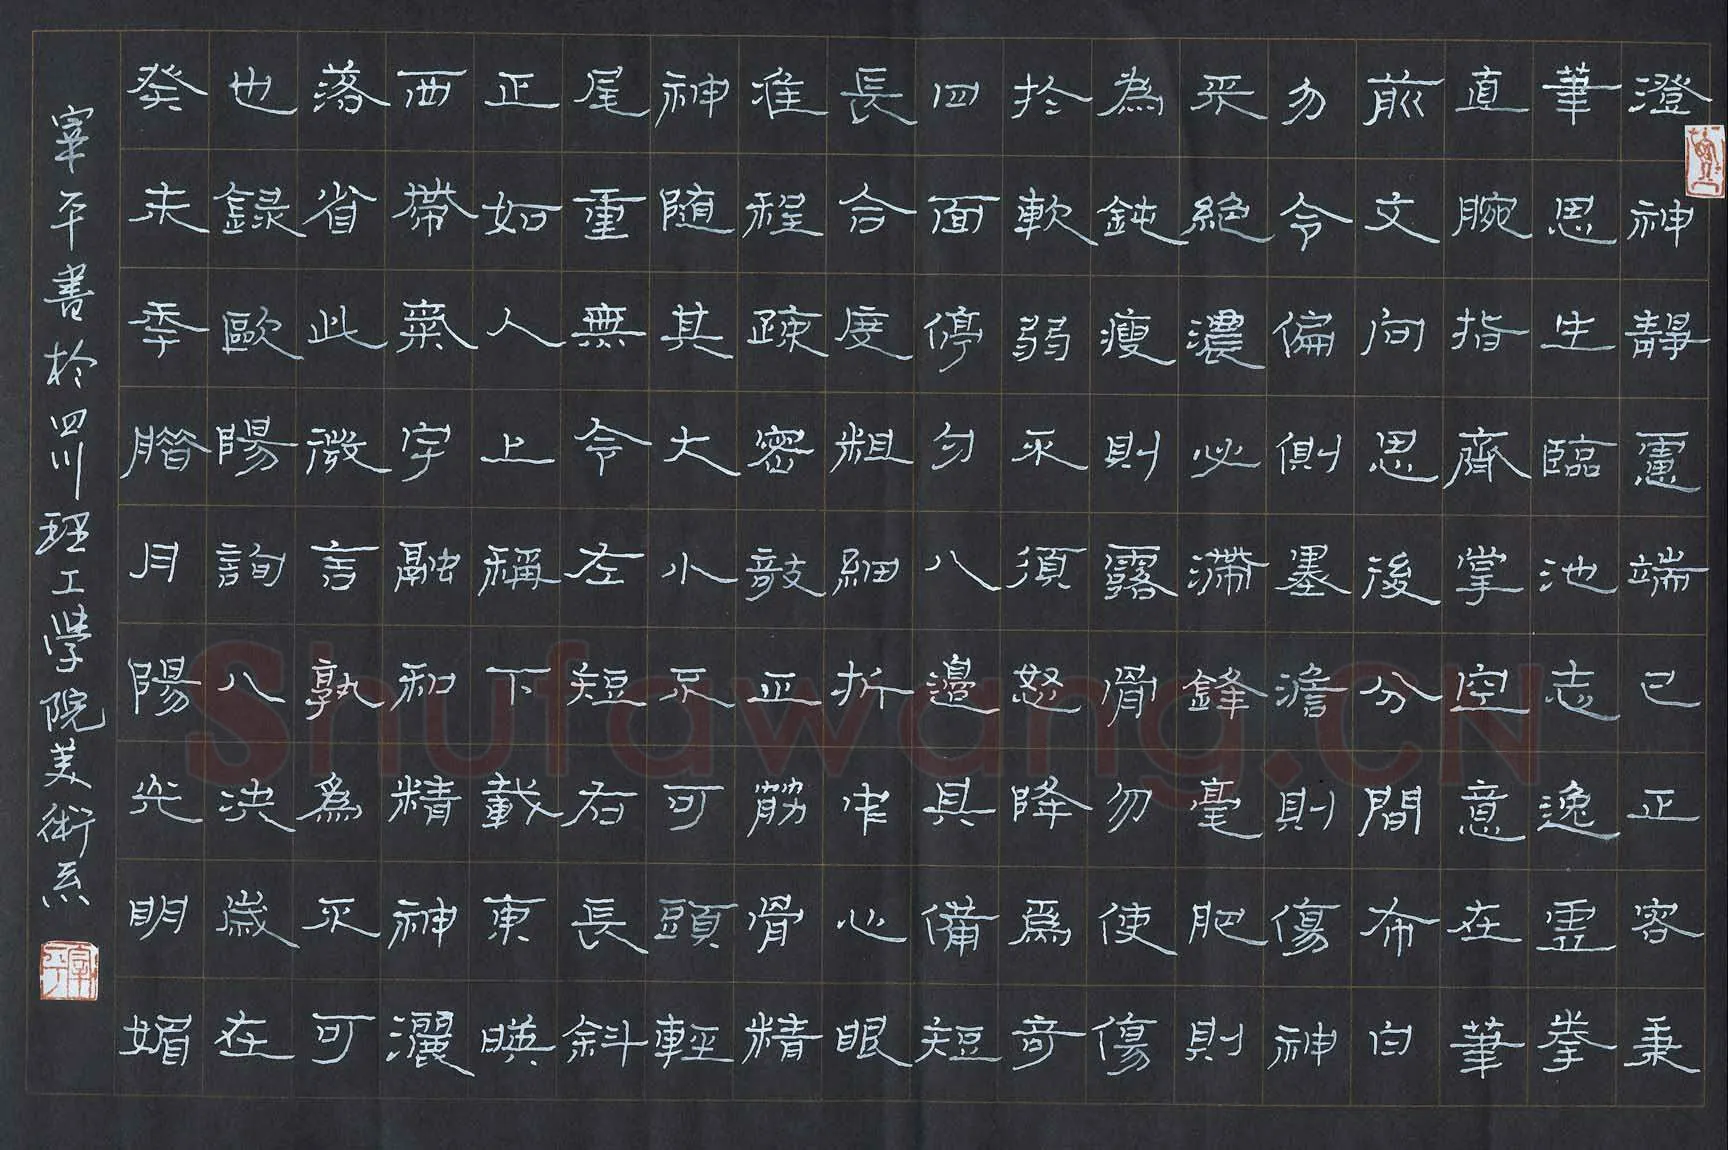 澄神靜慮端己正容秉
筆思生臨池志逸虛拳
直腕指齊掌空意在筆
前文向思後分間布白
勿令偏側墨澹則傷神
采絕濃必滯鋒毫肥則
為鈍瘦則露骨勿使傷
於軟弱不須怒降爲奇
四面停勻八邊具備短
長合度粗細折中心眼
准程疏密敧正筋骨精
神随其大小不可頭輕
尾重無令左短右長斜
正如人上稱下載東暎
西帶氣宇融和精神灑
落省此微言孰爲不可
也錄歐陽詢八決歲在
癸未季腊月陽光明媚
宰平書於四川理工学院美術系
Shufawang.CN